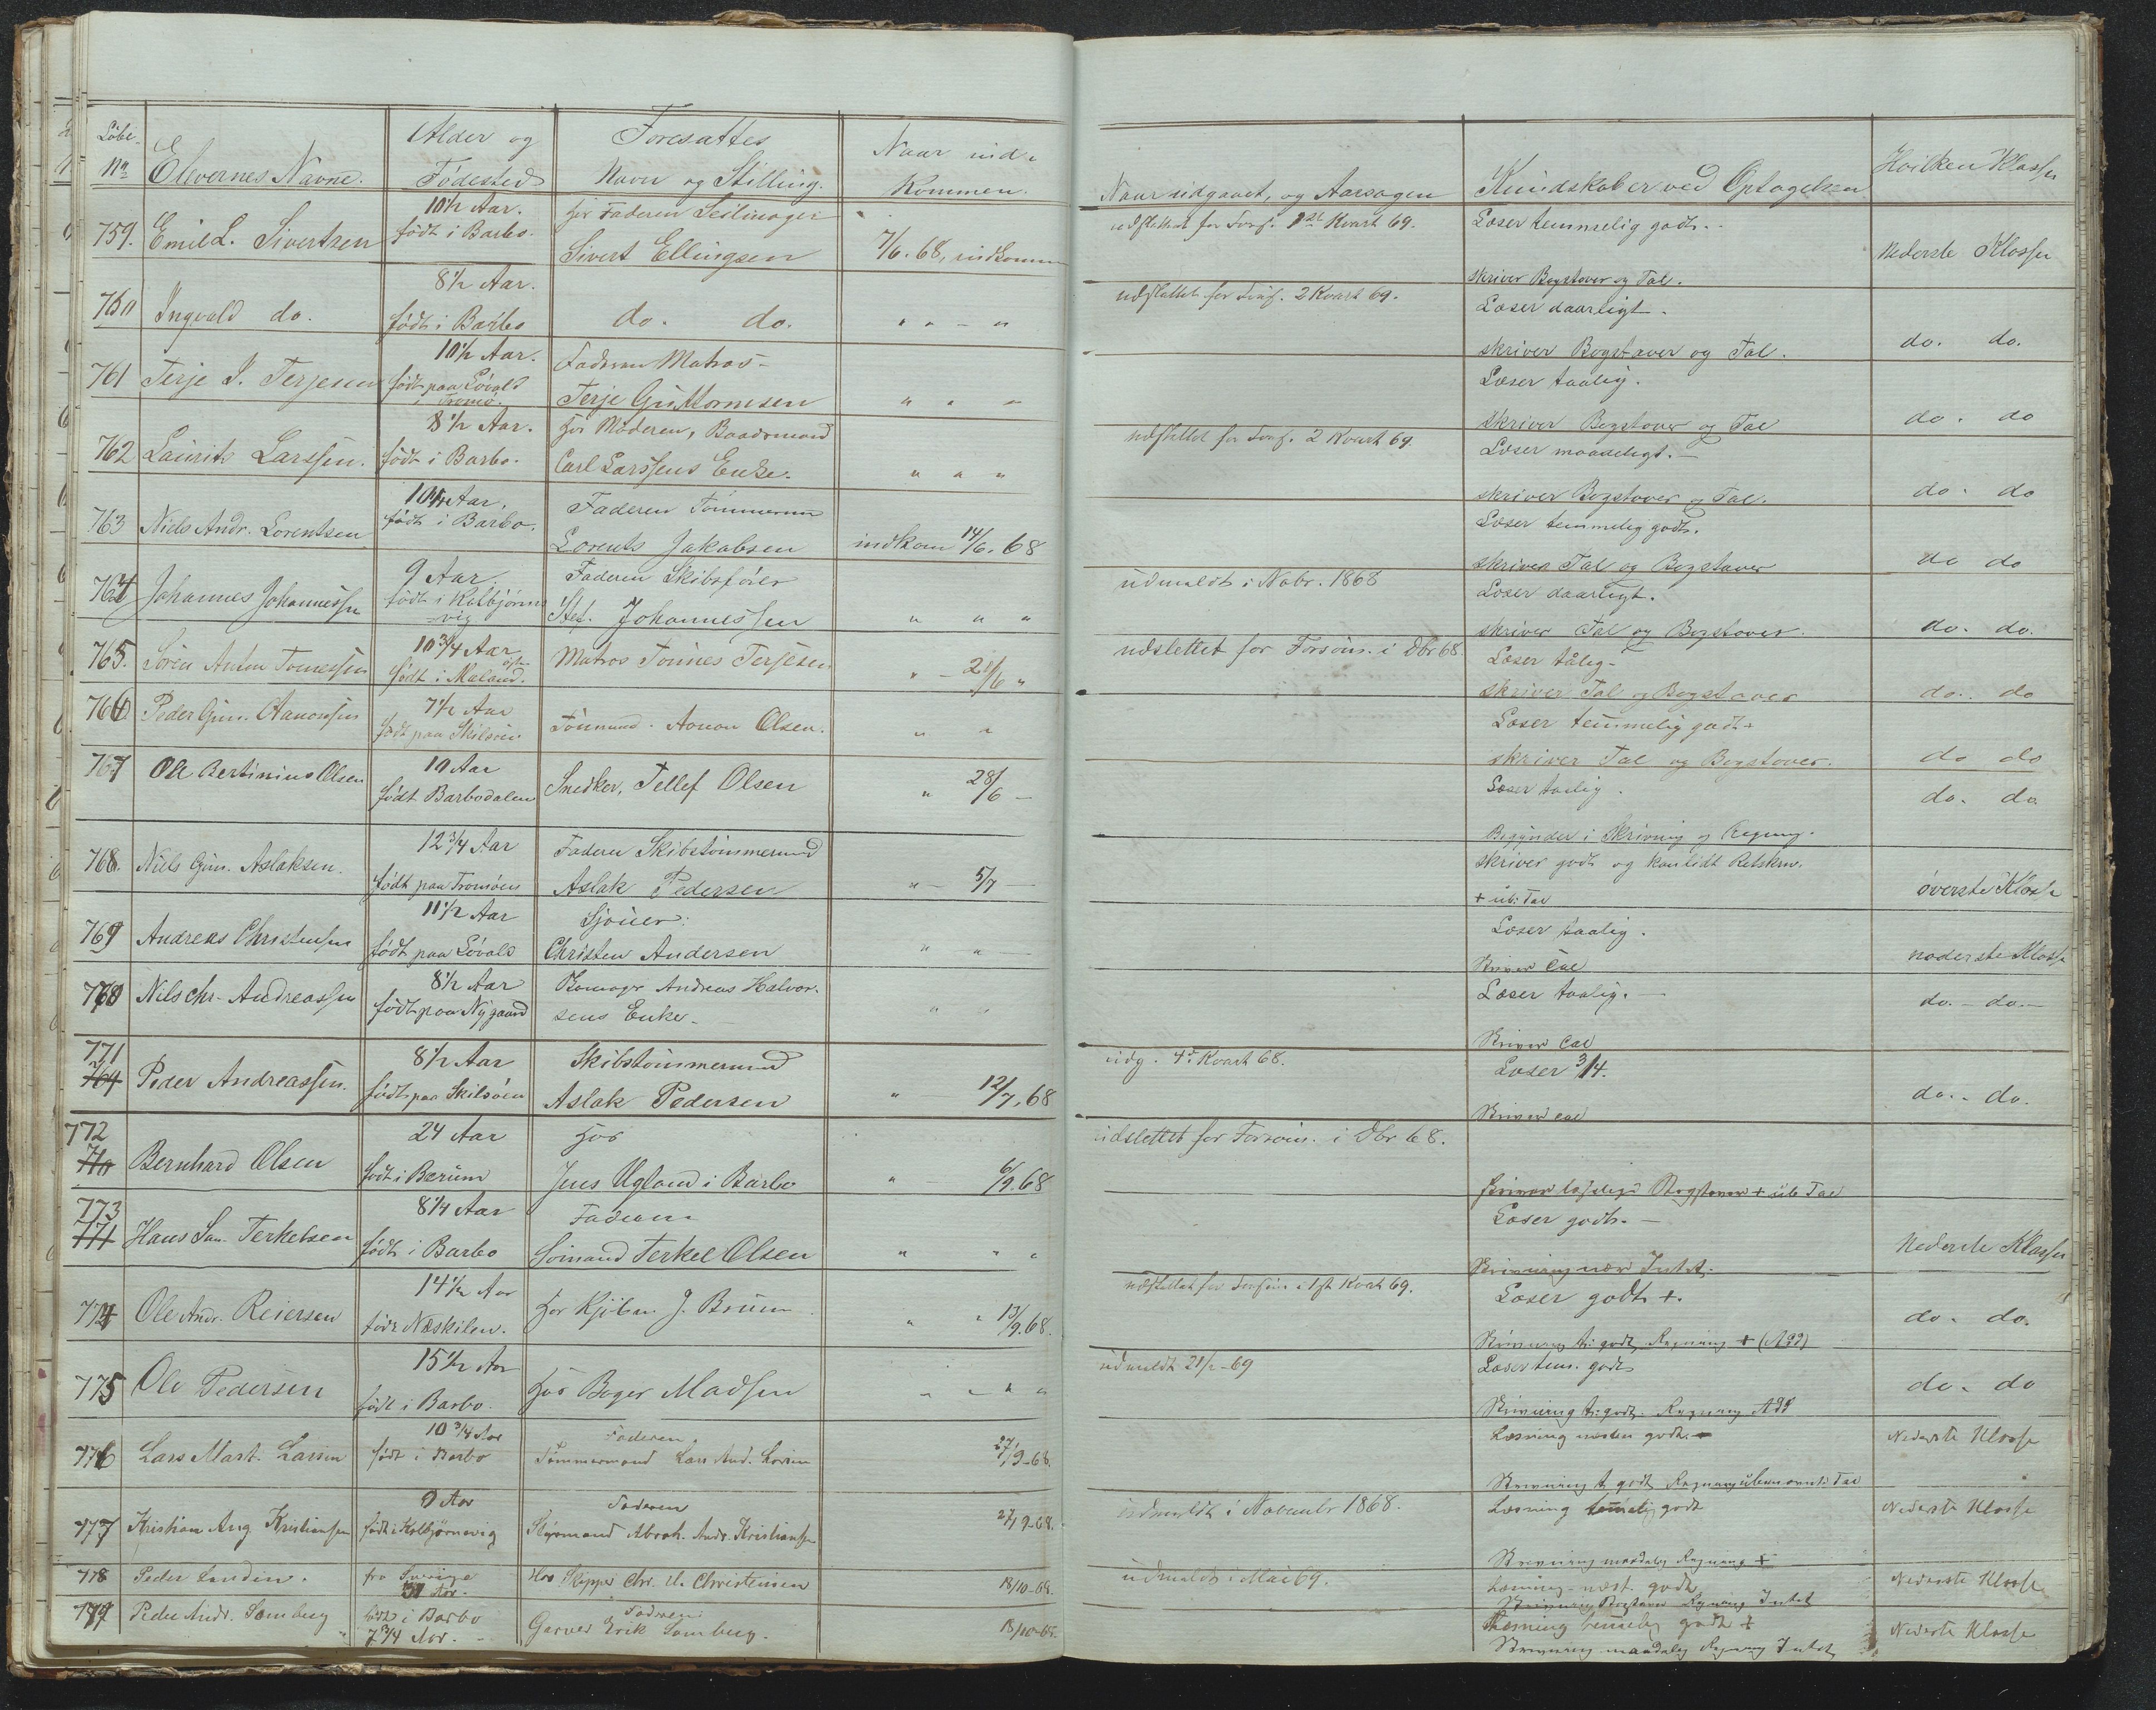 Löbe- No
Elevernes Navne.
Alder og Födested
Foresattes Navn og Stilling.
Naar ind- kommen.
Naar udgaaet, og Aarsagen
Kundskaber ved Optagelsen
Hvilken Klasse
759. Emil L. Sivertsen
10 1/2 Aar. födt i Barbo.
hos Faderen Seilmager Sivert Ellingsen
7/6. 68, indkommen
udslettet for Fors. 1st Kvart 69.
Læser temmelig godt.
skriver Bogstaver og Tal.
Nederste Klasse
760 Ingvald do.
8 1/2 Aar. födt i Barbo
do. do.
" " - "
udslettet for Fors. 2 Kvart 69.
Læser daarligt.
skriver Bogstaver og Tal.
do. do.
761 Terje I. Terjesen
10 1/2 Aar. födt paa Lövold i Tromö.
Faderen Matros Terje Guttormsen
" " "
Læser taalig.
skriver Bogstaver og Tal
do. do
762 Laurits Larssen.
8 1/2 Aar. födt i Barbo.
hos Moderen, Baadsmand Carl Larssens Enke.
" " "
udslettet for Fors. 2 Kvart 69.
Læser maadeligt.
skriver Bogstaver og Tal.
do. do
763 Niels Andr. Lorentsen
födt i Barbo.
Faderen Tömmermd Lorents Jakobsen
indkom 14/6. 68
Læser temmelig godt.
skriver Tal og Bogstaver
do do
764 Johannes Johannessen
9 Aar. födt i Kolbjörns- vig
Faderen Skibsförer Stef. Johannessen
" " "
udmeldt i Nobr. 1868
Læser daarligt.
skriver Tal og Bogstaver.
do. do.
765. Sören Anton Tönnessen
10 3/4 Aar födt i Moland.
Matros Tönnes Terjesen
" - 21/6 "
udslettet for Forsöm. i Dbr 68.
Læser tålig.
skriver Tal og Bogstaver
do. do
766 Peder Gun. Aanonsen
7 1/2 Aar födt paa Skilsöen
Tömmermd. Aanon Olsen.
" "
Læser temmelig godt
skriver Tal og Bogstaver.
do do
767 Ole Bertinius Olsen
10 Aar födt Barbodalen
Snedker, Tellef Olsen
" 28/6 -
Læser taalig.
Begynder i Skrivning og Regning.
do. do.
768. Niels Gun. Aslaksen.
12 3/4 Aar födt paa Tromöen
Faderen Skibstömmermd Aslak Pedersen
" - 5/7 -
skriver godt og kan lidt Retskrivn.
+ ub: Tal
överste Klasse
769 Andreas Christensen
11 1/2 Aar födt paa Lövold
Sjouer. Christen Andersen
" " -
Læser taalig.
Skriver Tal
nederste Klasse
770 Nils Chr. Andreassen
8 1/2 Aar födt paa Nygaard
Andreas Halvorsens Enke.
" "
Læser taalig.
Skriver Tal
do. - do. -
771 764 Peder Andreassen.
8 1/2 Aar födt paa Skilsöen
Skibstömmermd Aslak Pedersen
" 12/7. 68
udg. 4de Kvart 68.
Læser 3/4.
Skriver Tal
do. - do.
772 770 Bernhard Olsen
24 Aar födt i Bærum
hos Jens Ugland i Barbo
" 6/9. 68
udslettet for Forsöm. i Dbr 68.
Skriver Bogstaver + ub Tal
773 771 Hans Sam. Terkelsen
8 1/4 Aar födt i Barbo
Faderen Sömand Terkel Olsen
" " "
Læser godt.
Skrivning Intet.
Nederste Klasse
774 Ole Andr. Reiersen
14 1/2 Aar födt Næskilen.
hos Kjöbm. J. Bruun
" " 13/9. 68.
udslettet for Forsöm. i 1st Kvart 69.
Læser godt +.
Skrivning t. godt Regning + (Add)
do. do.
775 Ole Pedersen
15 1/2 Aar födt i Barbo.
hos Bager Madsen
" " " "
udmeldt 21/2 - 69
Læser tem. godt
Skrivning t. godt. Regning Add
do. do
776 Lars Mart. Larsen
10 3/4 Aar födt i Barbo
Faderen Tömmermand Lars And. Larsen
27/9 - 68.
Læsning næsten godt.
Skrivning t. godt Regning ubenævnte Tal
Nederste Klasse
777 Kristian Aug Kristiansen
9 Aar födt i Kolbjörnsvig
Faderen Styrmand Abrah. Andr. Kristiansen
27/9 - 68.
udmeldt i Novembr 1868.
Læsning temmelig godt
Skrivning maadelig Regning +
Nederste Klasse
778 Peder Lundin.
fra Sverige Aar.
Hos Skipper Chr. U. Christensen
18/10 - 68.
udmeldt i Mai 69.
Læsning næst. godt
Skrivning Bogstaver Regning Intet
Nederste Klasse
779 Peder Andr. Somberg
födt i Barbo 7 3/4 Aar.
Faderen Garver Erik Somberg.
18/10 - 68.
Læsning temmelig godt +
Skrivning maadelig Regning Intet
Nederste Klasse